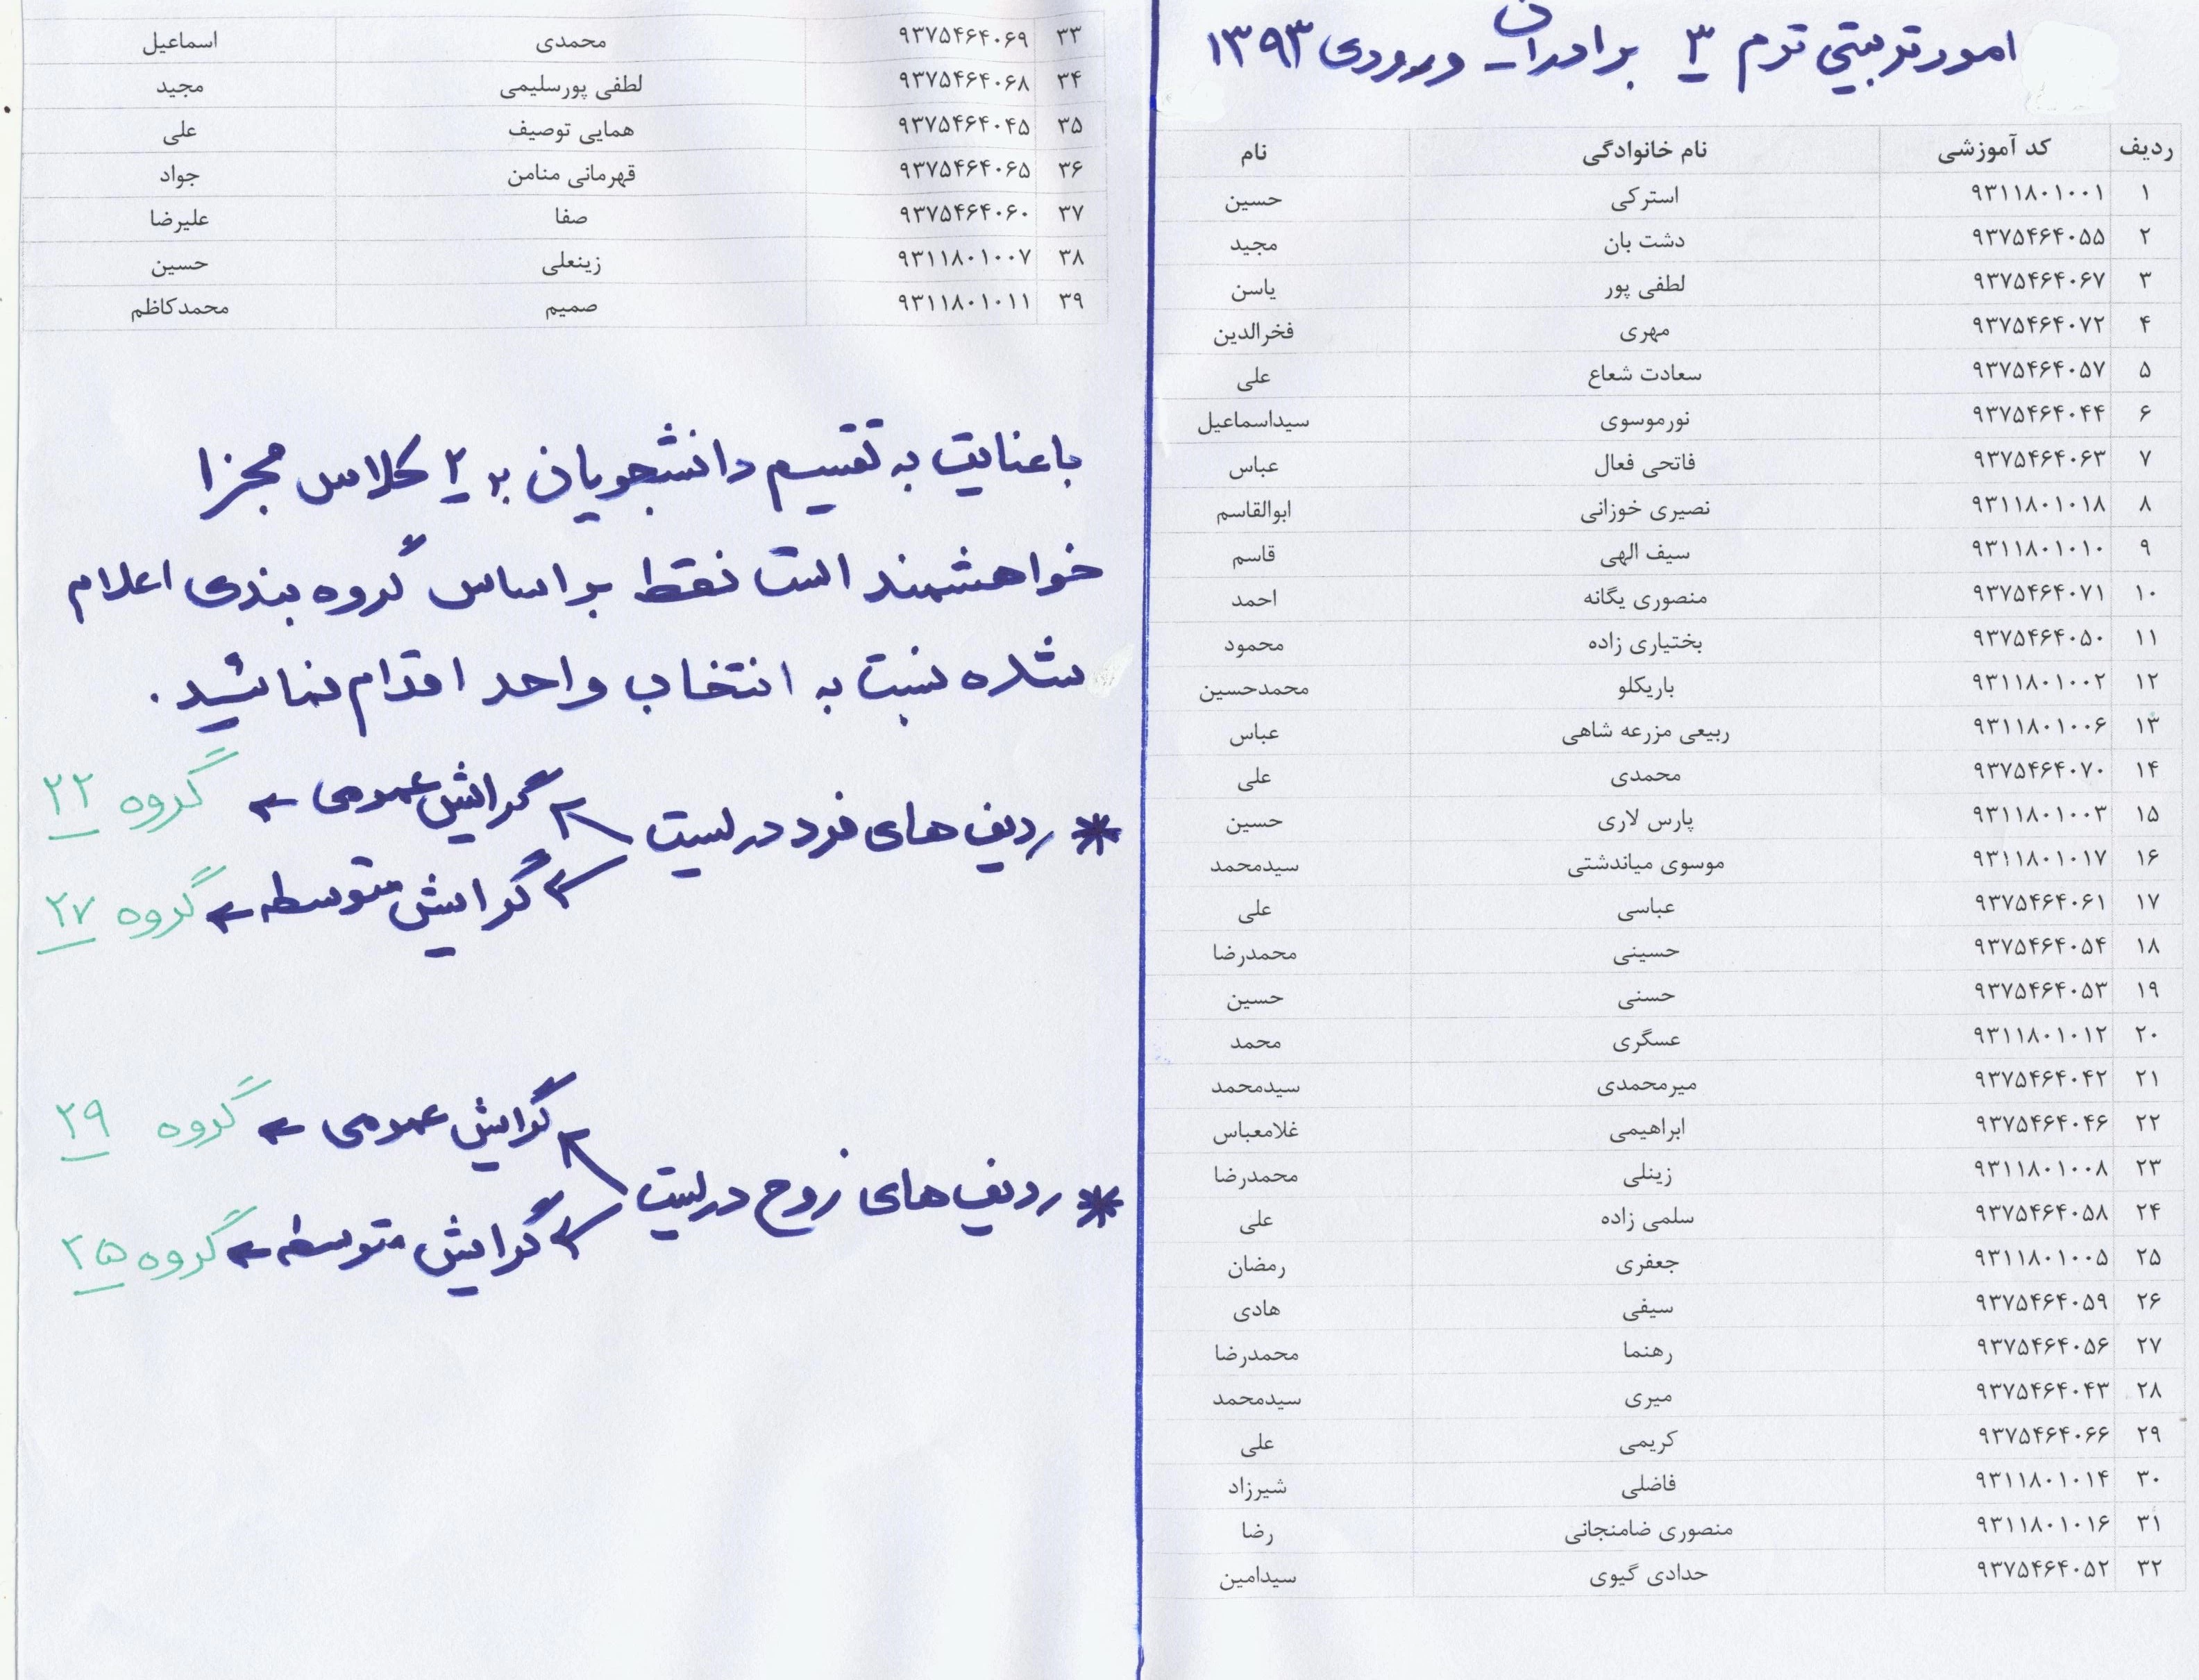 امور تربیتی ترم ۳ برادران ورودی ۱۳۹۳
ردیف کد آموزشی نام خانوادگی نام
۱ ۹۳۱۱۸۰۱۰۰۱ استرکی حسین
۲ ۹۳۷۵۴۶۴۰۵۵ دشت بان مجید
۳ ۹۳۷۵۴۶۴۰۶۷ لطفی پور یاسن
۴ ۹۳۷۵۴۶۴۰۷۲ مهری فخرالدین
۵ ۹۳۷۵۴۶۴۰۵۷ سعادت شعاع علی
۶ ۹۳۷۵۴۶۴۰۴۴ نورموسوی سیداسماعیل
۷ ۹۳۷۵۴۶۴۰۶۳ فاتحی فعال عباس
۸ ۹۳۱۱۸۰۱۰۱۸ نصیری خوزانی ابوالقاسم
۹ ۹۳۱۱۸۰۱۰۱۰ سیف الهی قاسم
۱۰ ۹۳۷۵۴۶۴۰۷۱ منصوری یگانه احمد
۱۱ ۹۳۷۵۴۶۴۰۵۰ بختیاری زاده محمود
۱۲ ۹۳۱۱۸۰۱۰۰۲ باریکلو محمدحسین
۱۳ ۹۳۱۱۸۰۱۰۰۶ ربیعی مزرعه شاهی عباس
۱۴ ۹۳۷۵۴۶۴۰۷۰ محمدی علی
۱۵ ۹۳۱۱۸۰۱۰۰۳ پارس لاری حسین
۱۶ ۹۳۱۱۸۰۱۰۱۷ موسوی میاندشتی سیدمحمد
۱۷ ۹۳۷۵۴۶۴۰۶۱ عباسی علی
۱۸ ۹۳۷۵۴۶۴۰۵۴ حسینی محمدرضا
۱۹ ۹۳۷۵۴۶۴۰۵۳ حسنی حسین
۲۰ ۹۳۱۱۸۰۱۰۱۲ عسگری محمد
۲۱ ۹۳۷۵۴۶۴۰۴۲ میرمحمدی سیدمحمد
۲۲ ۹۳۷۵۴۶۴۰۴۶ ابراهیمی غلامعباس
۲۳ ۹۳۱۱۸۰۱۰۰۸ زینلی محمدرضا
۲۴ ۹۳۷۵۴۶۴۰۵۸ سلمی زاده علی
۲۵ ۹۳۱۱۸۰۱۰۰۵ جعفری رمضان
۲۶ ۹۳۷۵۴۶۴۰۵۹ سیفی هادی
۲۷ ۹۳۷۵۴۶۴۰۵۶ رهنما محمدرضا
۲۸ ۹۳۷۵۴۶۴۰۴۳ میری سیدمحمد
۲۹ ۹۳۷۵۴۶۴۰۶۶ کریمی علی
۳۰ ۹۳۱۱۸۰۱۰۱۴ فاضلی شیرزاد
۳۱ ۹۳۱۱۸۰۱۰۱۶ منصوری ضامنجانی رضا
۳۲ ۹۳۷۵۴۶۴۰۵۲ حدادی گیوی سیدامین
۳۳ ۹۳۷۵۴۶۴۰۶۹ محمدی اسماعیل
۳۴ ۹۳۷۵۴۶۴۰۶۸ لطفی پورسلیمی مجید
۳۵ ۹۳۷۵۴۶۴۰۴۵ همایی توصیف علی
۳۶ ۹۳۷۵۴۶۴۰۶۵ قهرمانی منامن جواد
۳۷ ۹۳۷۵۴۶۴۰۶۰ صفا علیرضا
۳۸ ۹۳۱۱۸۰۱۰۰۷ زینعلی حسین
۳۹ ۹۳۱۱۸۰۱۰۱۱ صمیم محمدکاظم
با عنایت به تقسیم دانشجویان به ۲ کلاس مجزا
خواهشمند است فقط بر اساس گروه بندی اعلام
شده نسبت به انتخاب واحد اقدام نمائید.
* ردیف های فرد در لیست
گرایش عمومی ← گروه ۲۲
گرایش متوسطه ← گروه ۲۷
* ردیف های زوج در لیست
گرایش عمومی ← گروه ۲۹
گرایش متوسطه ← گروه ۲۵